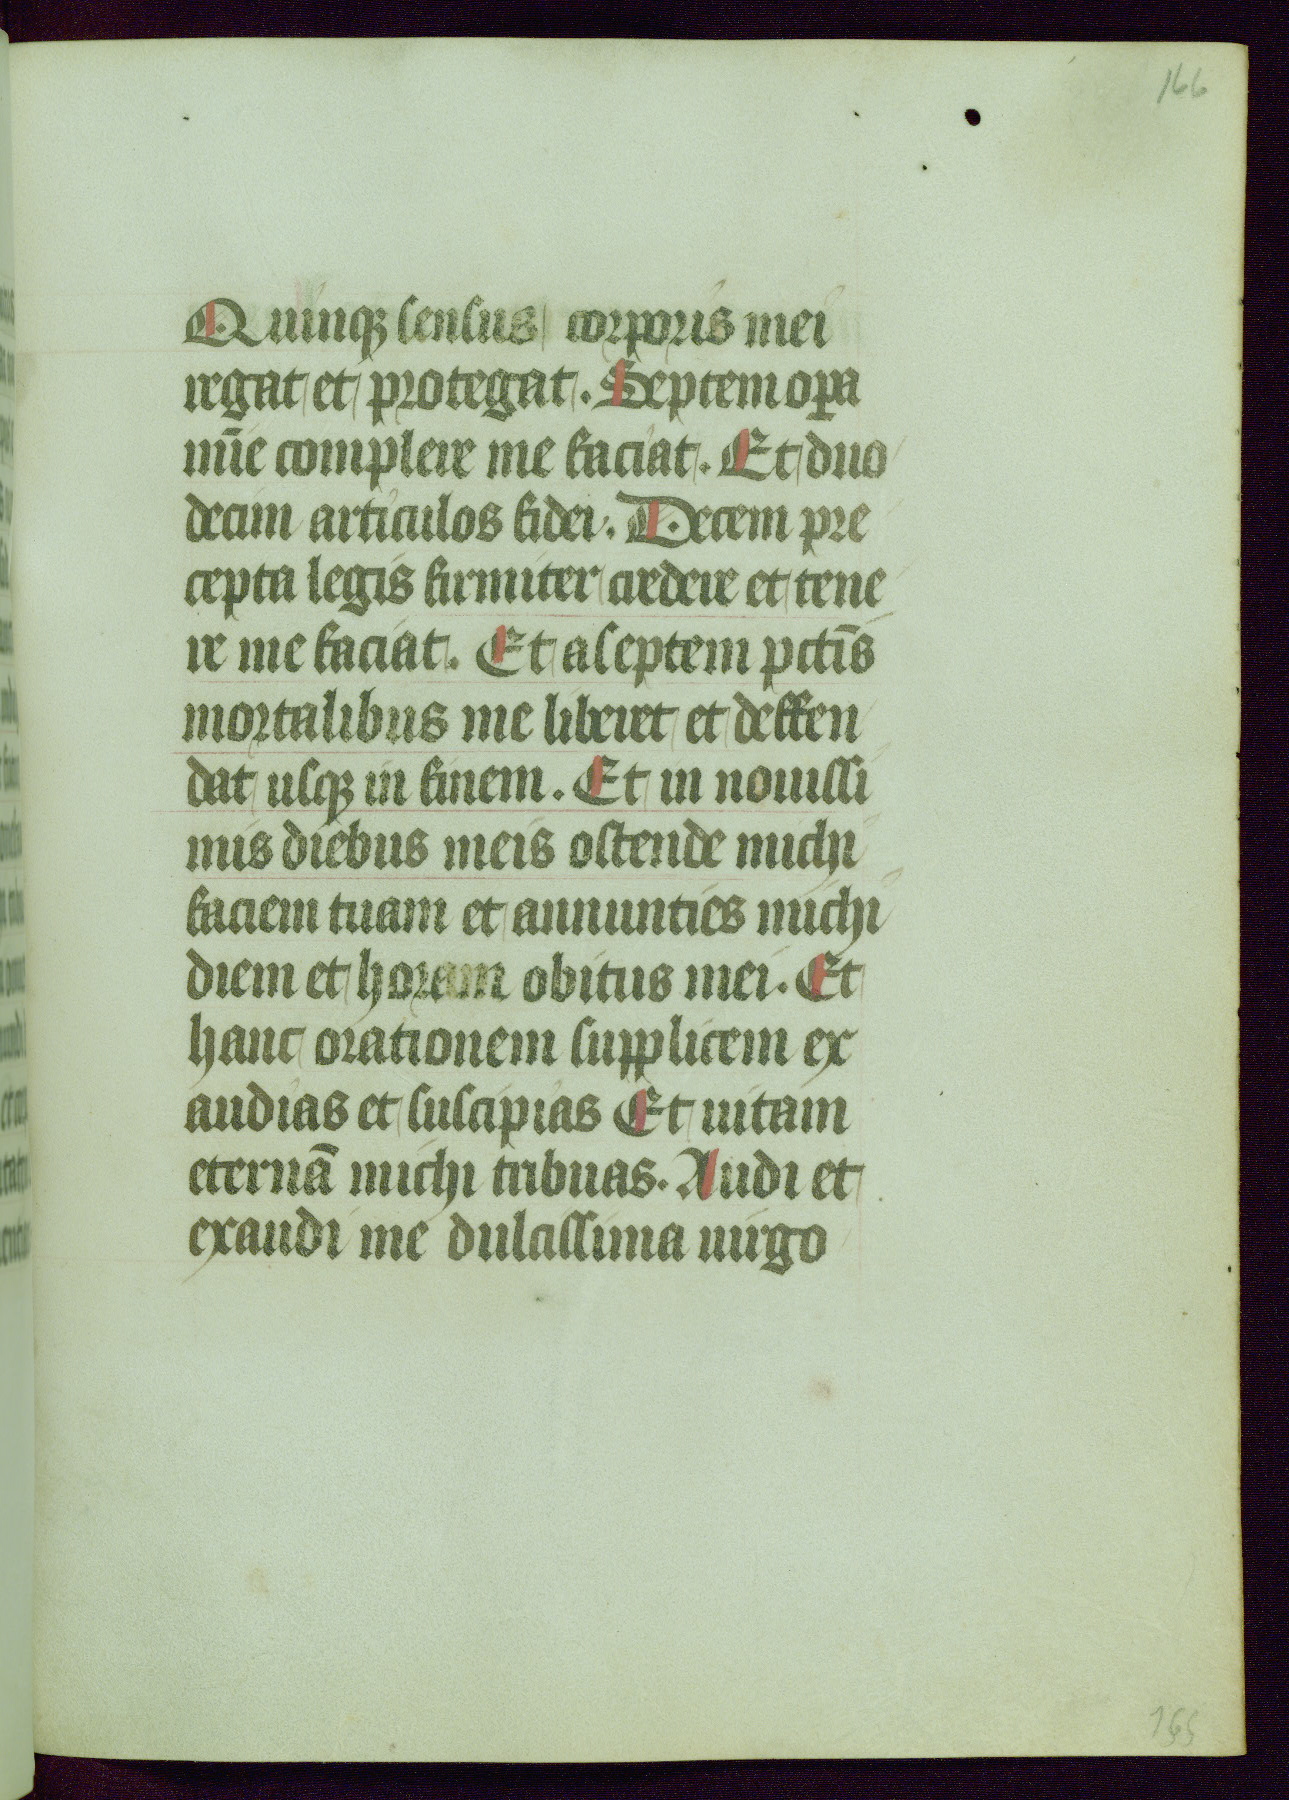 166
Quinqꝫ sensus corporis mei
regat et protegat. Septem oꝑa
mīe complere me faciat. Et duo
decim articulos fidei. Decem pre
cepta legis firmiter credere et tene
re me faciat. Et a septem pctīs
mortalibus me liberet et deffen
dat usqꝫ in finem. Et in nouissi
mis diebus meis ostende michi
faciem tuam et annunties michi
diem et horam obitus mei. Et
hanc orationem supplicem ex
audias et suscipias Et uitam
eternā michi tribuas. Audi et
exaudi me dulcissima uirgo
165